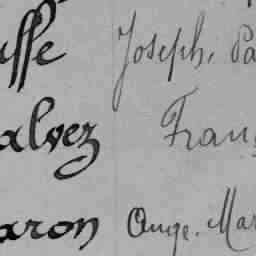 uffe Joseph, Pa
alvez Franç
aron Ange. Mar